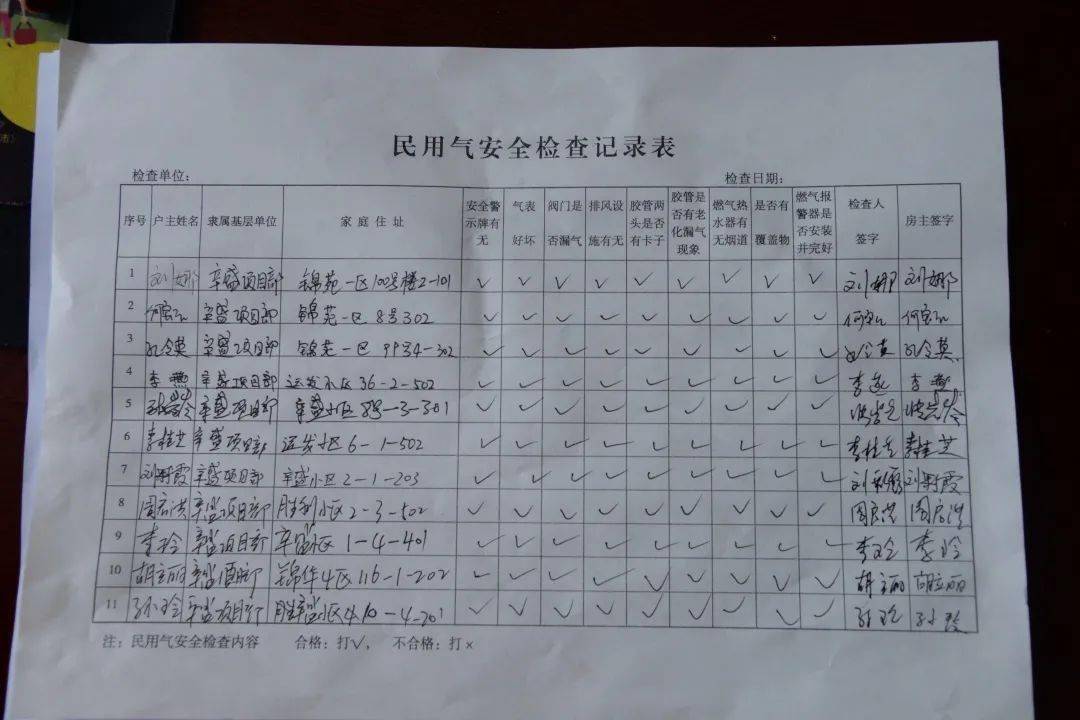 民用气安全检查记录表
检查单位： 检查日期：
序号 户主姓名 隶属基层单位 家庭住址 安全警示牌有无 气表好坏 阀门是否漏气 排风设施有无 胶管两头是否有卡子 胶管是否有老化漏气现象 燃气热水器有无烟道 是否有覆盖物 燃气报警器是否安装并完好 检查人签字 房主签字
1 刘娜 辛盛项目部 锦苑一区100号楼2-101 ✓ ✓ ✓ ✓ ✓ ✓ ✓ ✓ ✓ 刘娜 刘娜
2 辛盛项目部 锦苑一区8号302 ✓ ✓ ✓ ✓ ✓ ✓ ✓ ✓ ✓
3 孔令英 辛盛项目部 锦苑一区99号4-302 ✓ ✓ ✓ ✓ ✓ ✓ ✓ ✓ ✓ 孔令英 孔令英
4 李燕 辛盛项目部 运发小区36-2-502 ✓ ✓ ✓ ✓ ✓ ✓ ✓ ✓ ✓ 李燕 李燕
5 辛盛项目部 辛盛小区88-3-301 ✓ ✓ ✓ ✓ ✓ ✓ ✓ ✓ ✓
6 李桂芝 辛盛项目部 运发小区6-1-502 ✓ ✓ ✓ ✓ ✓ ✓ ✓ ✓ ✓ 李桂芝 李桂芝
7 辛盛项目部 辛盛小区2-1-203 ✓ ✓ ✓ ✓ ✓ ✓ ✓ ✓ ✓
8 辛盛项目部 胜利小区2-3-502 ✓ ✓ ✓ ✓ ✓ ✓ ✓ ✓ ✓
9 李玲 辛盛项目部 辛盛小区1-4-401 ✓ ✓ ✓ ✓ ✓ ✓ ✓ ✓ ✓ 李玲 李玲
10 胡立丽 辛盛项目部 锦华4区116-1-202 ✓ ✓ ✓ ✓ ✓ ✓ ✓ ✓ ✓ 胡立丽 胡立丽
11 孙玲 辛盛项目部 ✓ ✓ ✓ ✓ ✓ ✓ ✓ ✓ ✓ 孙玲 孙玲
注：民用气安全检查内容 合格：打✓， 不合格：打×